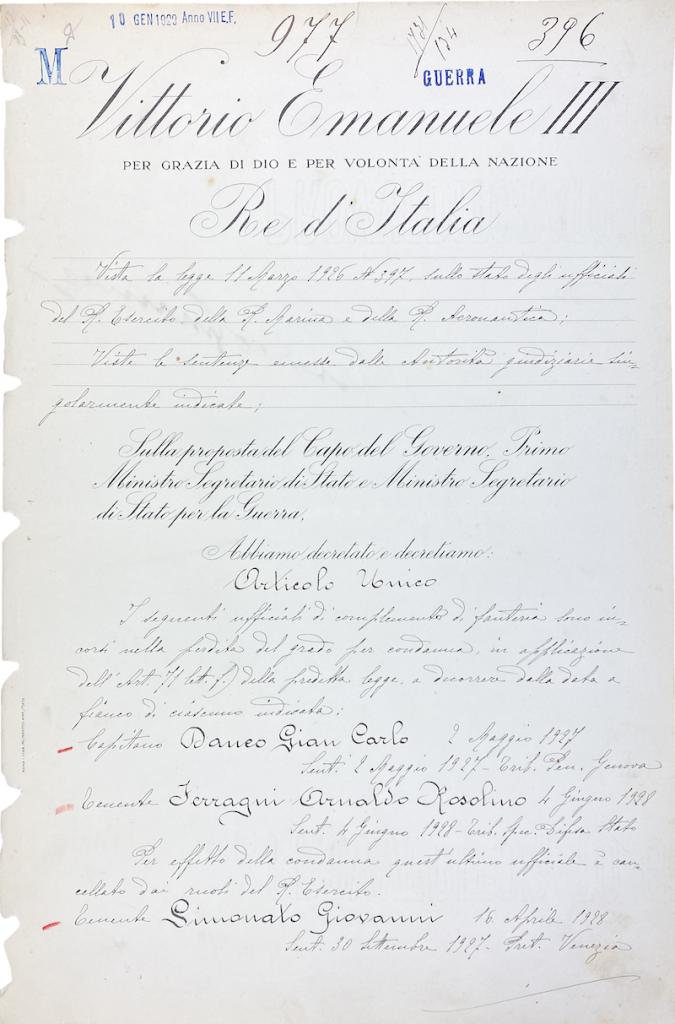 10 GEN 1929 Anno VII E.F.
977
396
M
GUERRA
Vittorio Emanuele III
PER GRAZIA DI DIO E PER VOLONTA' DELLA NAZIONE
Re d'Italia
Vista la legge 11 Marzo 1926 N 397, sullo stato degli ufficiali
del R. Esercito, della R. Marina e della R. Aeronautica;
Viste le sentenze emesse dalle Autorità giudiziarie sin-
golarmente indicate;
Sulla proposta del Capo del Governo, Primo
Ministro Segretario di Stato e Ministro Segretario
di Stato per la Guerra,
Abbiamo decretato e decretiamo:
Articolo Unico
I seguenti ufficiali di complemento di fanteria sono in-
corsi nella perdita del grado per condanna, in applicazione
dell'Art. 71 lett. f.) della predetta legge, a decorrere dalla data a
fianco di ciascuno indicata:
Capitano Daneo Gian Carlo 2 Maggio 1927
Sent. 2 Maggio 1927 - Trib. Pen. Genova
Tenente Ferragni Arnaldo Rosolino 4 Giugno 1928
Sent. 4 Giugno 1928 - Trib. Spec. Difesa Stato
Per effetto della condanna quest'ultimo ufficiale è can-
cellato dai ruoli del R. Esercito.
Tenente Simonato Giovanni 16 Aprile 1928
Sent. 30 Settembre 1927 - Pret. Venezia